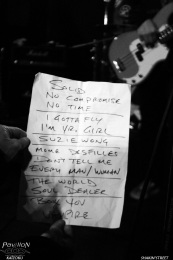 SOLID
NO COMPROMISE
NO TIME
I GOTTA FLY
I'M YR. GIRL
SUZIE WONG
MOME DESFILLES
DONT TELL ME
EVERY MAN/WOMAN
THE WORLD
SOUL DEALER
I BEAT YOU
MORE
SHAKIN'STREET